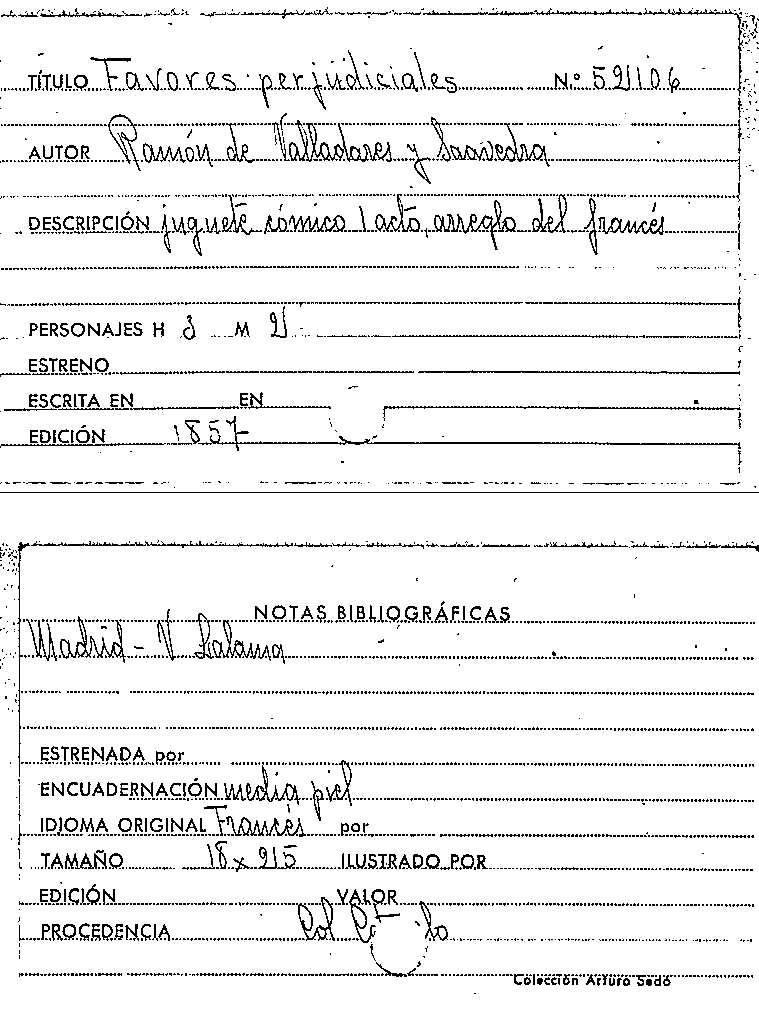 TÍTULO Favores perjudiciales N.º 52106
AUTOR Ramón de Valladares y Saavedra
DESCRIPCIÓN juguete cómico 1 acto, arreglo del francés
PERSONAJES H 3 M 2
ESTRENO
ESCRITA EN EN
EDICIÓN 1857
NOTAS BIBLIOGRÁFICAS
Madrid - V Lalama
ESTRENADA por
ENCUADERNACIÓN media piel
IDIOMA ORIGINAL Francés por
TAMAÑO 18 x 25 ILUSTRADO POR
EDICIÓN VALOR
PROCEDENCIA Col
Colección Arturo Sedó